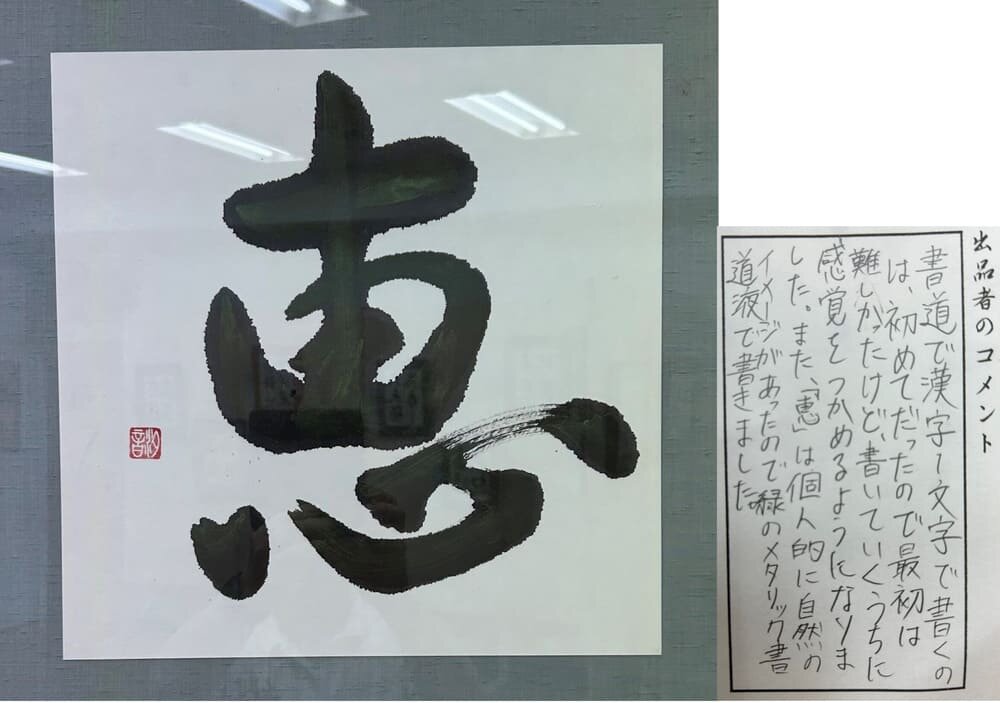 恵
沙音
出品者のコメント
書道で漢字一文字で書くの
は、初めてだったので最初は
難しかったけど、書いていくうちに
感覚をつかめるようになりま
した。また、「恵」は個人的に自然の
イメージがあったので緑のメタリック書
道液で書きました。